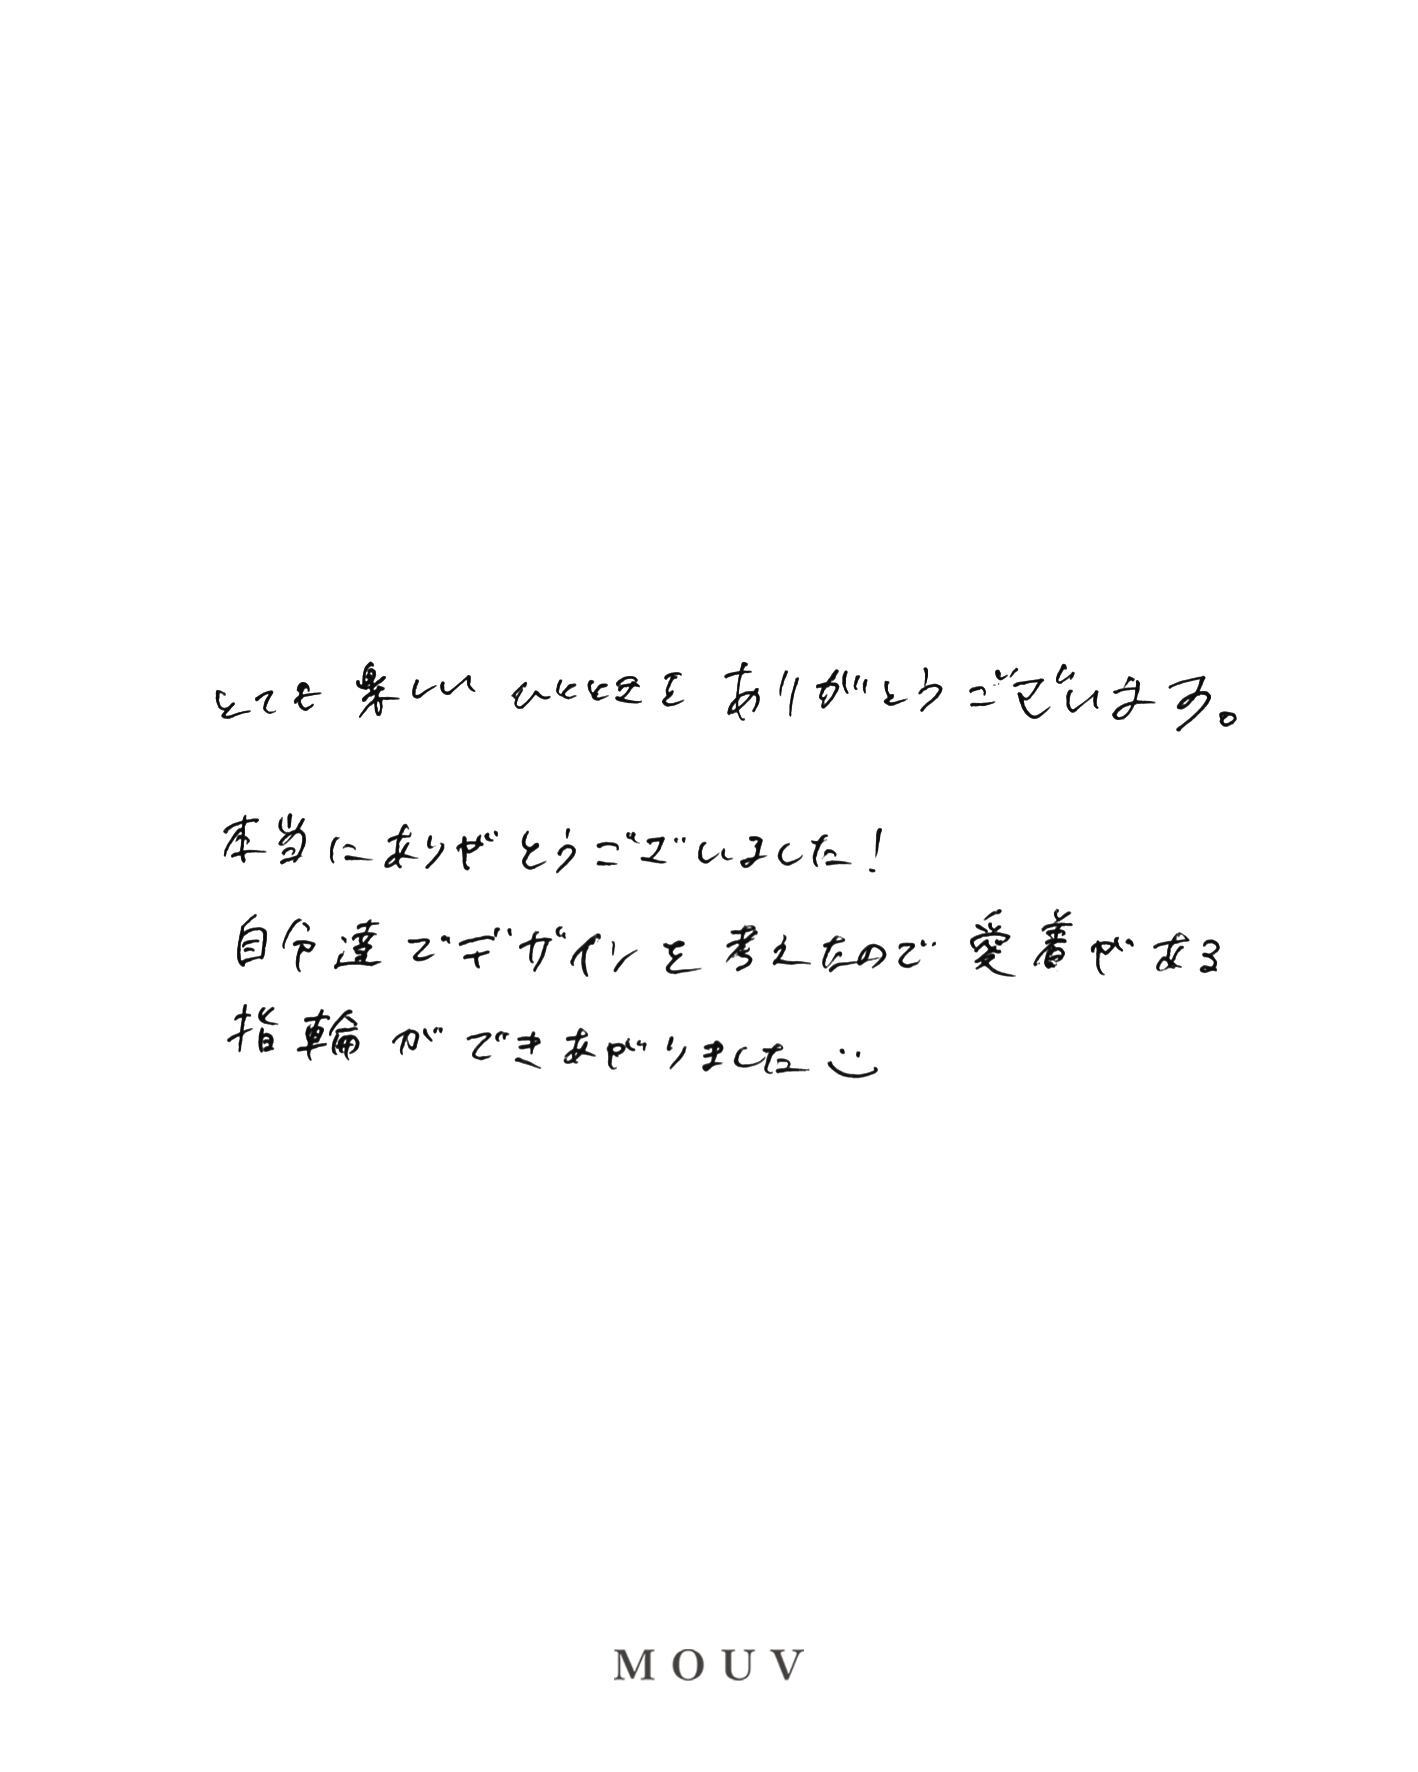 とても楽しいひとときをありがとうございます。
本当にありがとうございました!
自分達でデザインを考えたので愛着がある
指輪ができあがりました
MOUV